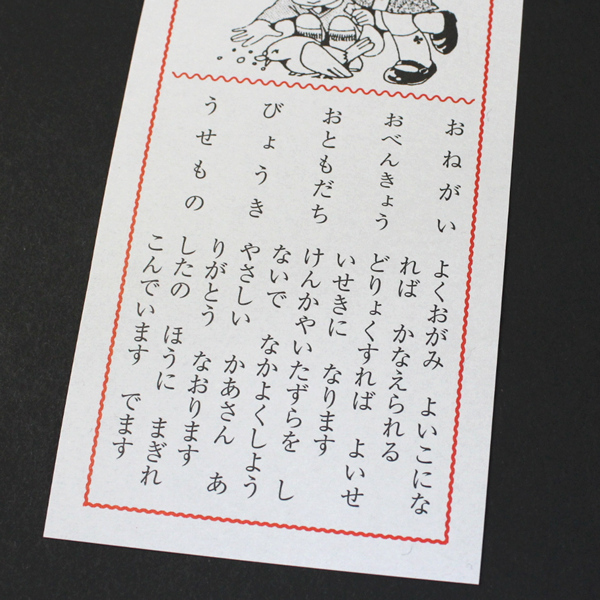 おねがい
よくおがみ よいこにな
れば かなえられる
おべんきょう
どりょくすれば よいせ
いせきに なります
おともだち
けんかやいたずらを し
ないで なかよくしよう
びょうき
やさしい かあさん あ
りがとう なおります
うせもの
したの ほうに まぎれ
こんでいます でます